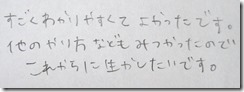 すごくわかりやすくて よかったです。
他のやり方なども みつかったので
これからに生かしたいです。